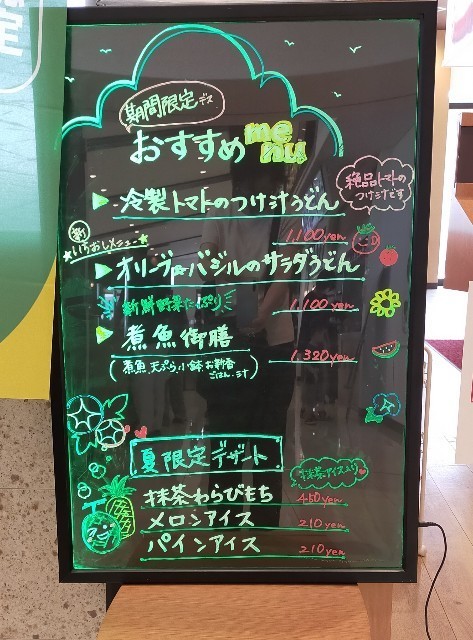 期間限定デス
おすすめ menu
▶ 冷製トマトのつけ汁うどん
絶品トマトの
つけ汁です
1,100yen
新
★いちおしメニュー★
▶ オリーブ&バジルのサラダうどん
新鮮野菜たっぷり
1,100yen
▶ 煮魚御膳
1,320yen
(煮魚 天ぷら 小鉢 お新香
ごはん・汁)
夏限定デザート
抹茶アイス入り
抹茶わらびもち 450yen
メロンアイス 210yen
パインアイス 210yen